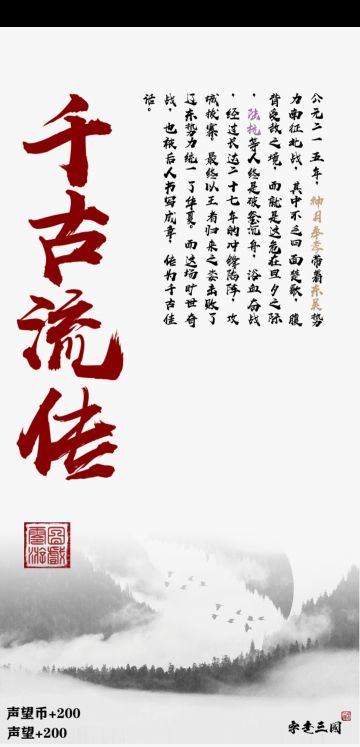 千古流传
公元二一五年，绅月奉孝带着东吴势
力南征北战，其中不乏四面楚歌，腹
背受敌之境，而就是这危在旦夕之际
，陆抗等人终是破釜沉舟，浴血奋战
，经过长达二十七年的冲锋陷阵，攻
城拔寨，最终以王者归来之姿击败了
辽东势力统一了华夏。而这场旷世奇
战，也被后人书写成章，传为千古佳
话。
声望币+200
声望+200
三國